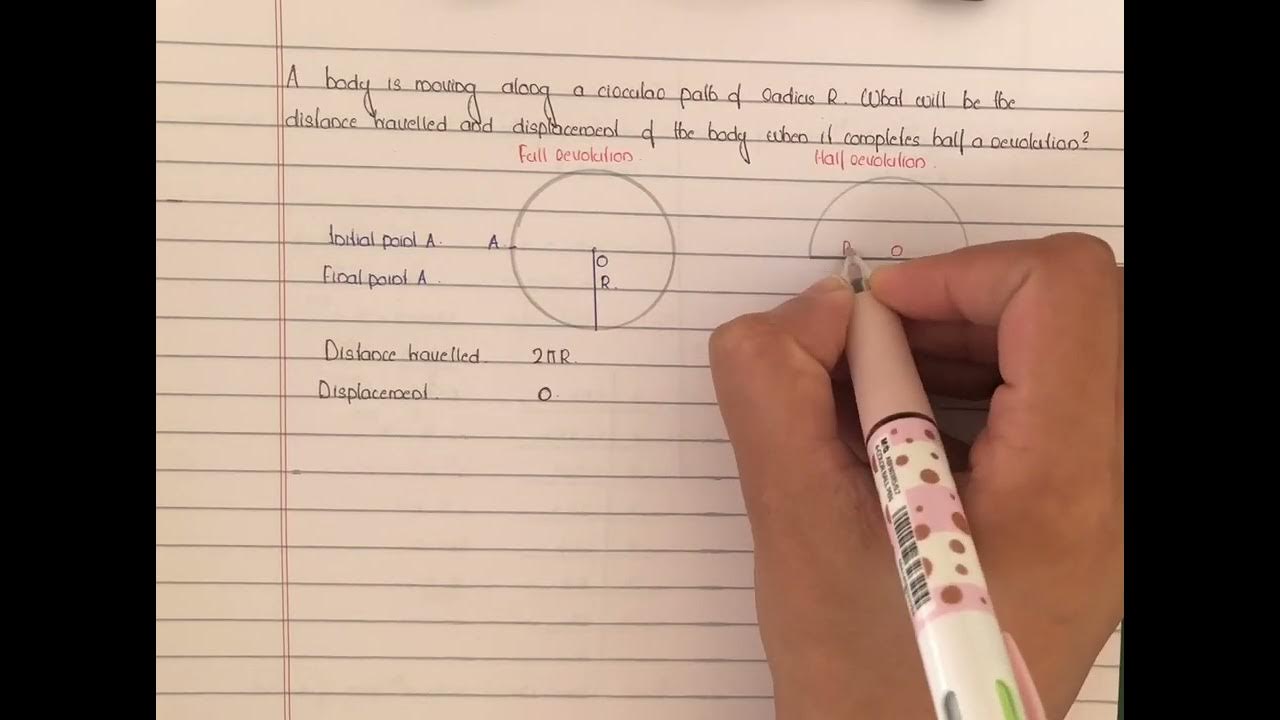 A body is moving along a circular path of radius R. What will be the
distance travelled and displacement of the body when it completes half a revolution?
Full revolution.
Half revolution.
Initial point A. A
O
Final point A R.
R O
Distance travelled. 2πR.
Displacement. O.
M&G